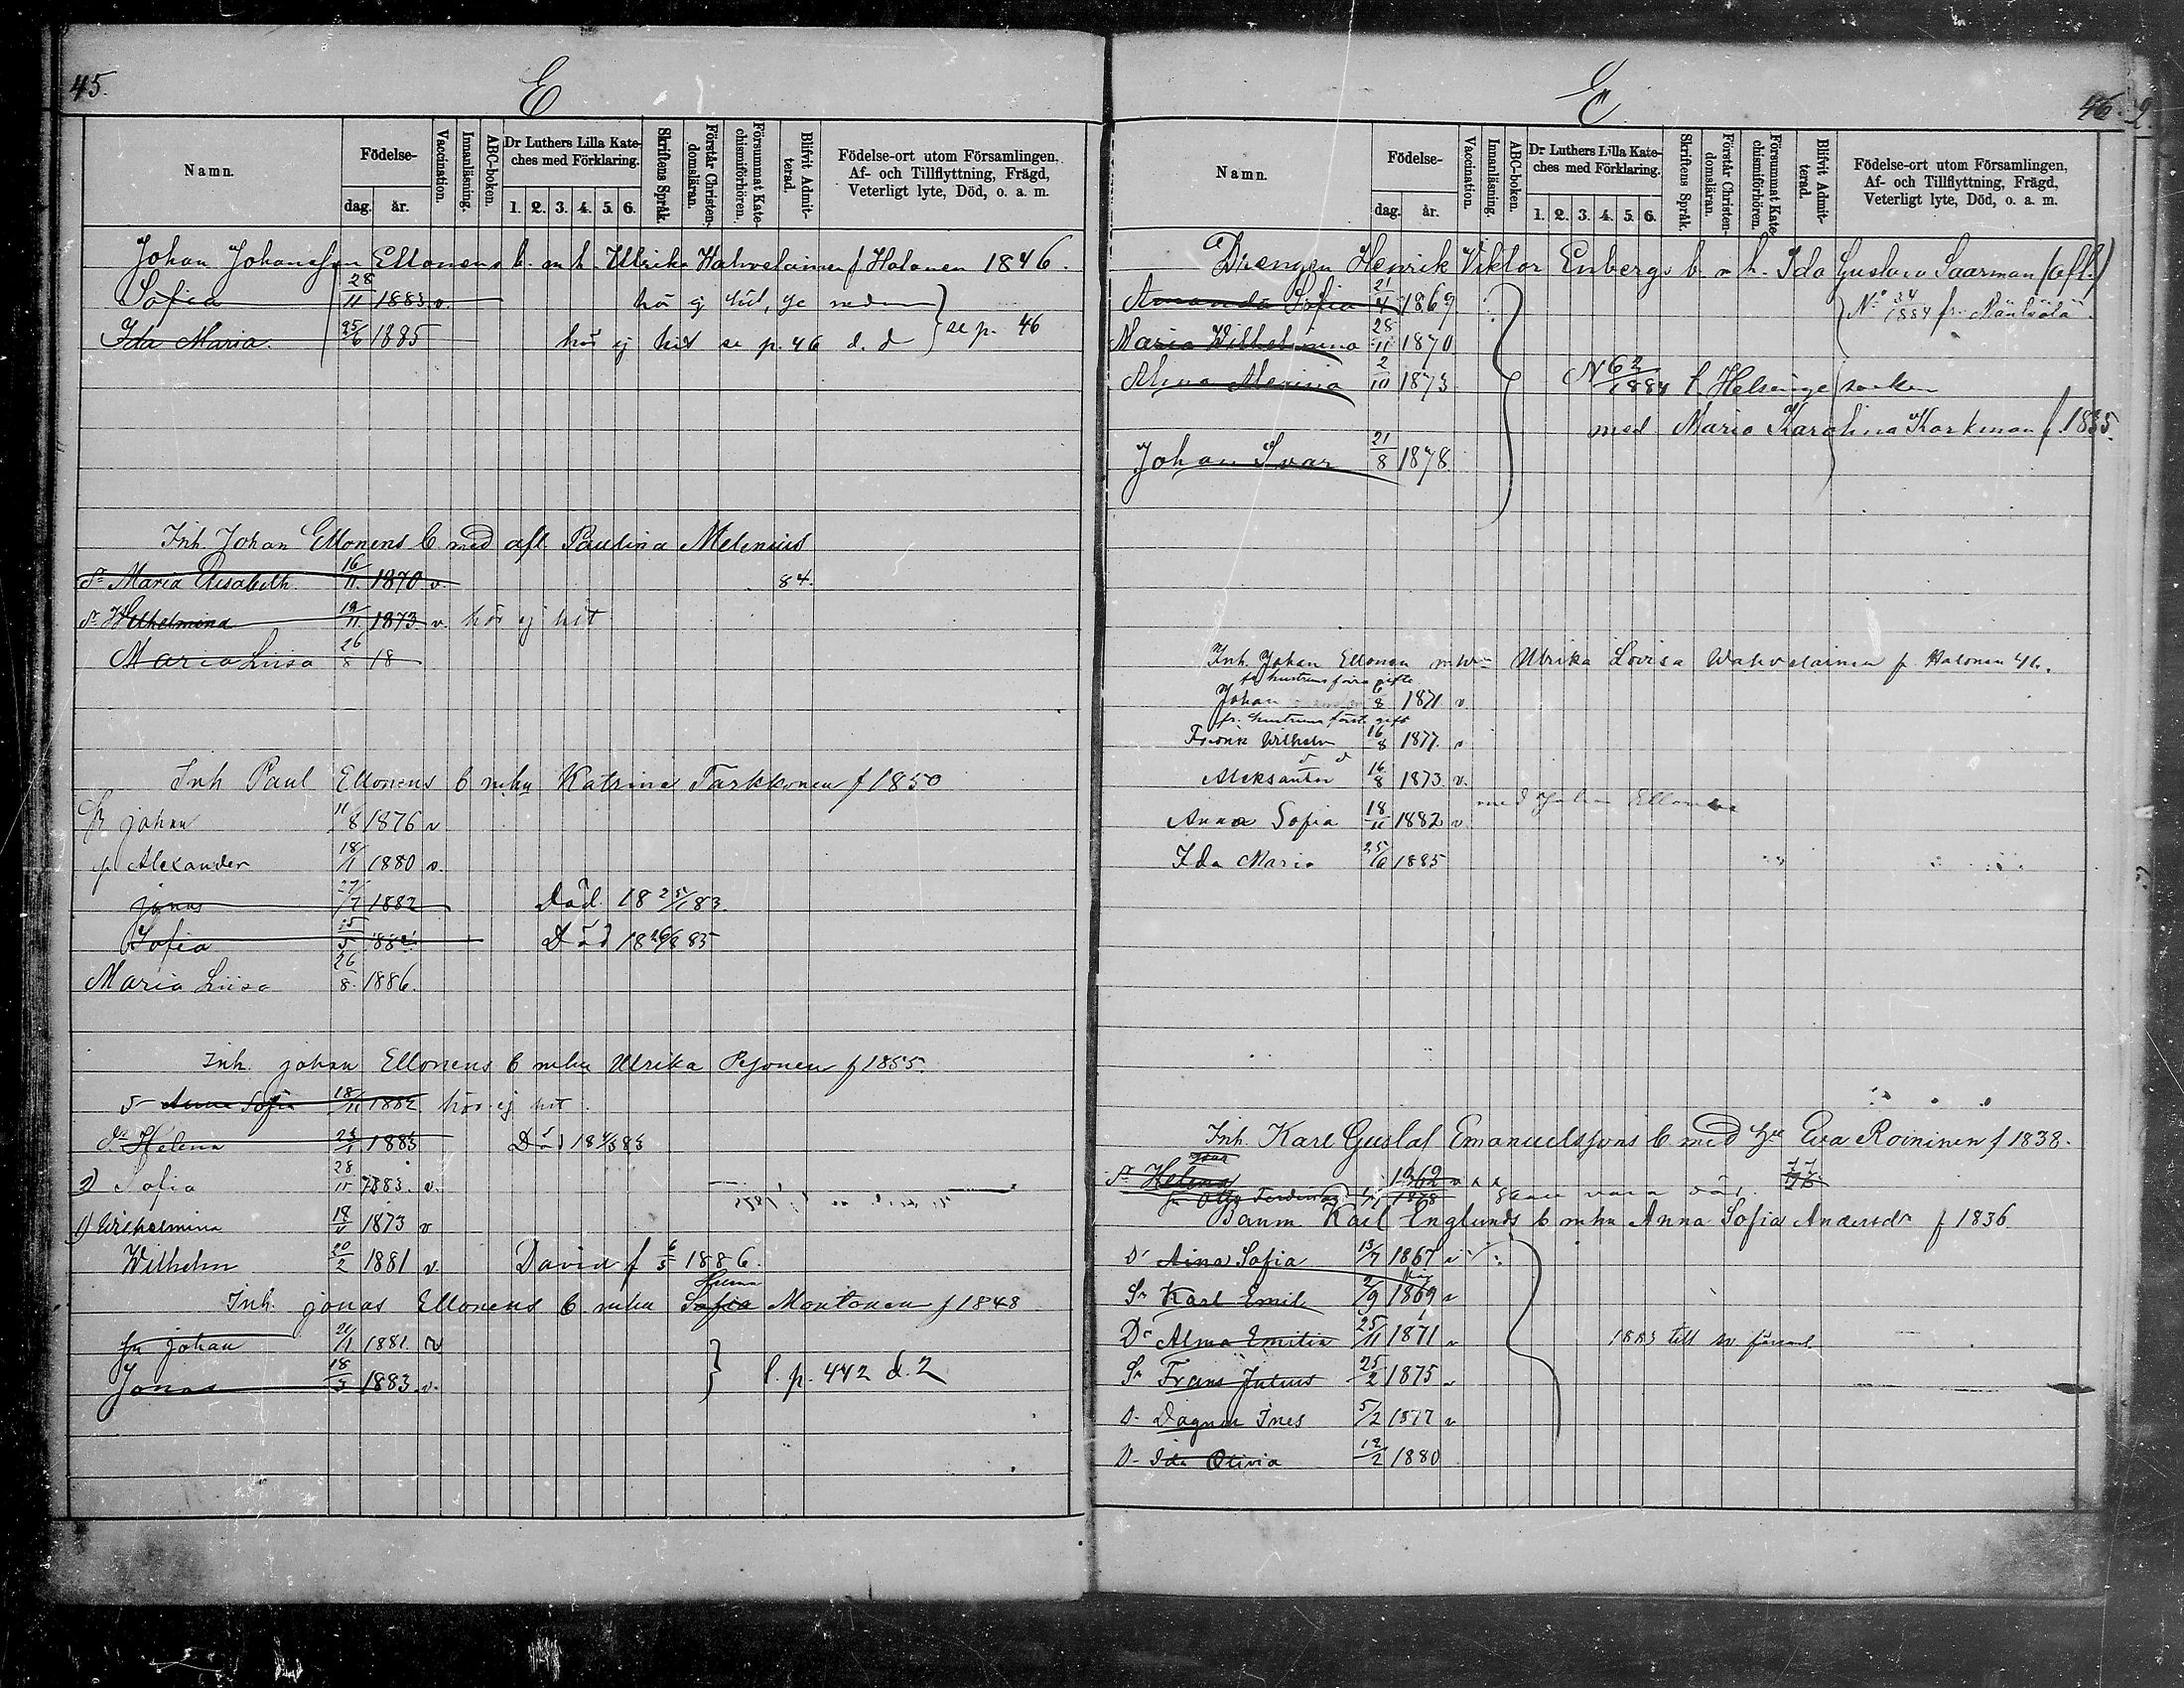 45.
E
Namn.
Födelse-
dag.
år.
Vaccination.
Innanläsning.
ABC-boken.
Dr Luthers Lilla Kate-
ches med Förklaring.
1. 2. 3. 4. 5. 6.
Skriftens Språk.
Förstår Christen-
domsläran.
Försummat Kate-
chismiförhören.
Blifvit Admit-
terad.
Födelse-ort utom Församlingen,
Af- och Tillflyttning, Frägd,
Veterligt lyte, Död, o. a. m.
Johan Johansson Ellonens b. m h. Ullrika Wahvelainen f Halonen 1846.
Sofia 28/11 1883 v. hör ej hit, se nedan
Ida Maria. 25/6 1885 hör ej hit se p. 46 d. d } se p. 46
Inh. Johan Ellonens b med afl. Paulina Melenius
Dr Maria Elisabeth 16/11 1870 v 84.
Dr Wilhelmina 19/11 1873 v. hör ej hit
Maria Liisa 26/8 18
Inh Paul Ellonens b mhu Katrina Tarkkonen f 1850
johan 11/8 1876 v
Alexander 18/1 1880 v.
jonas 27/7 1882 Död 18 25/1 83.
Sofia 15/5 1884 Död 18 16/8 85
Maria Liisa 26/8 1886.
Inh. johan Ellonens b mhu Ulrika Pesonen f 1855.
Anna Sofia 18/11 1882 hör ej hit.
Dr Helena 1883 Död
2) Sofia 28/11 1883. v.
1) Wilhelmina 18/11 1873 v
Wilhelm 20/2 1881 v. David f 6/5 1886.
Helena
Inh. jonas Ellonens b mhu Sofia Montonen f 1848
johan 21/1 1881. v
Jonas 18/3 1883 v. } l. p. 442 d. 2
E.
46. 2.
Namn.
Födelse-
dag.
år.
Vaccination.
Innanläsning.
ABC-boken.
Dr Luthers Lilla Kate-
ches med Förklaring.
1. 2. 3. 4. 5. 6.
Skriftens Språk.
Förstår Christen-
domsläran.
Försummat Kate-
chismiförhören.
Blifvit Admit-
terad.
Födelse-ort utom Församlingen,
Af- och Tillflyttning, Frägd,
Veterligt lyte, Död, o. a. m.
Drengen Henrik Viktor Enbergs b m h. Ida Gustava Saarman (afl.)
Amanda Sofia 21/4 1869 No 34/1884 fr.
Maria Wilhelmina 28/11 1870
Alma Alexina 2/10 1873 N 62/1884 t. Helsinge socken
med Maria Karolina Korkman f. 1835.
Johan Ivar 21/8 1878
Inh. Johan Ellonen m hu Ulrika Lovisa Wahvelainen f. Halonen 46.
fr hustruns förra gifte
Johan 6/8 1871 v.
fr. hustruns först. gift
Fredrik Wilhelm 16/8 1877. v
Aleksander 16/8 1873. v.
med Johan Ellonen
Anna Sofia 18/11 1882 v
Ida Maria 25/6 1885
Inh. Karl Gustaf Emanuelssons b med hu Eva Roininen f 1838.
Dr Helena 1862
Otto Ferdinand 1878
Baum. Karl Englunds b mhu Anna Sofia Andersdr f 1836.
Dr Aina Sofia 13/7 1867 v
Sr Karl Emil 2/9 1869 v
Dr Alma Emilia 25/11 1871 v 1883 till sv församl.
Sr Frans Julius 25/2 1875 v
D. Dagmar Ines 5/2 1877 v
D- Ida Olivia 12/2 1880